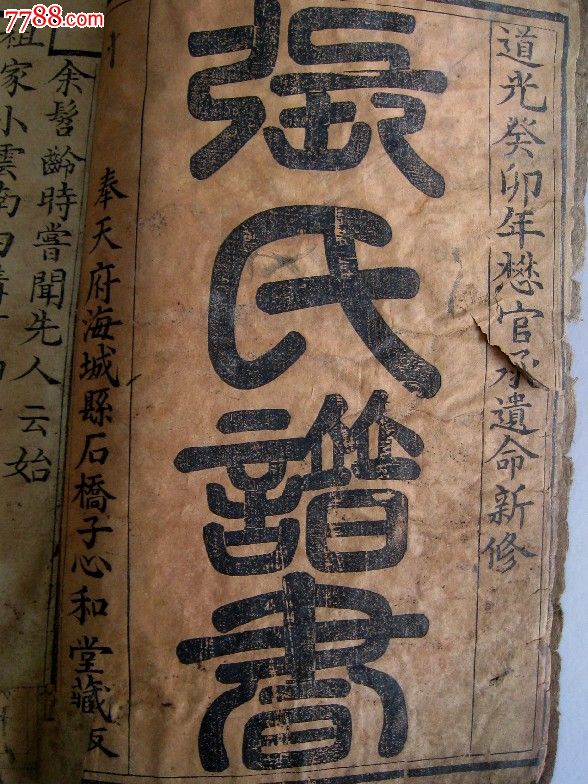 7788.com
中国收藏热线
道光癸卯年懋官承遺命新修
張氏譜書
奉天府海城縣石橋子心和堂藏
余髫齡時嘗聞先人云始
祖家小雲南